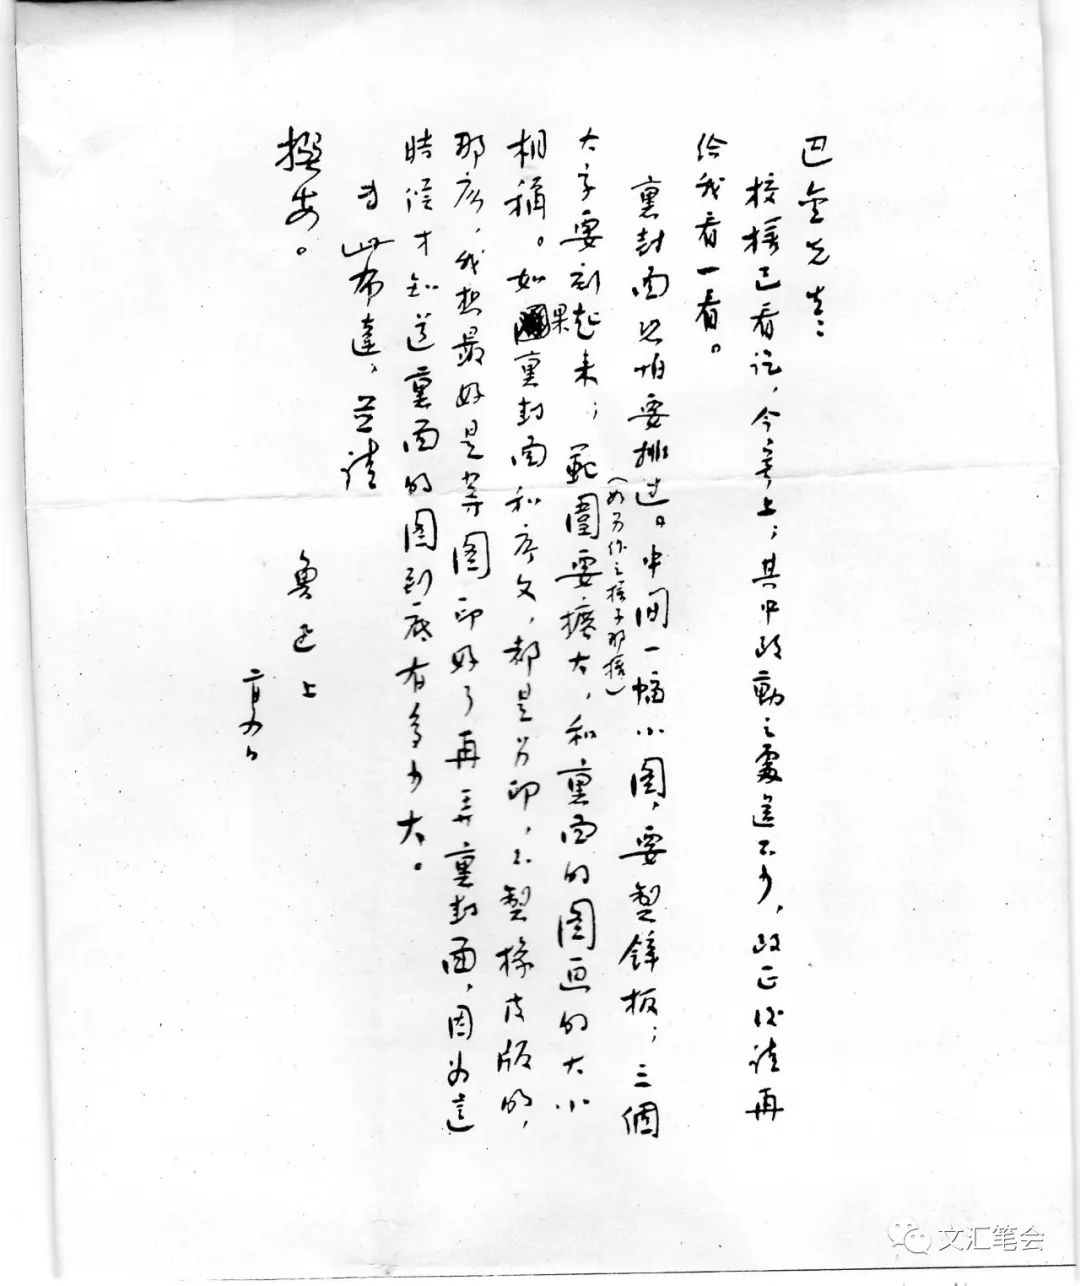 巴金先生：
校樣已看訖，今寄上；其中改動之處還不少，改正後請再
給我看一看。
裏封面恐怕要排过。中间一幅小图，要製鋅板；三個
大字要刻起来；範圍要擴大，和裏面的图画的大小
（如另作之樣子那樣）
相稱。如果裏封面和序文，都是另印，不製橡皮版的，
那么，我想最好是等图印好了再弄裏封面，因为這
時候才知道裏面的图到底有多少大。
专此布達，並請
撰安。
魯迅上
二月四日
文汇笔会